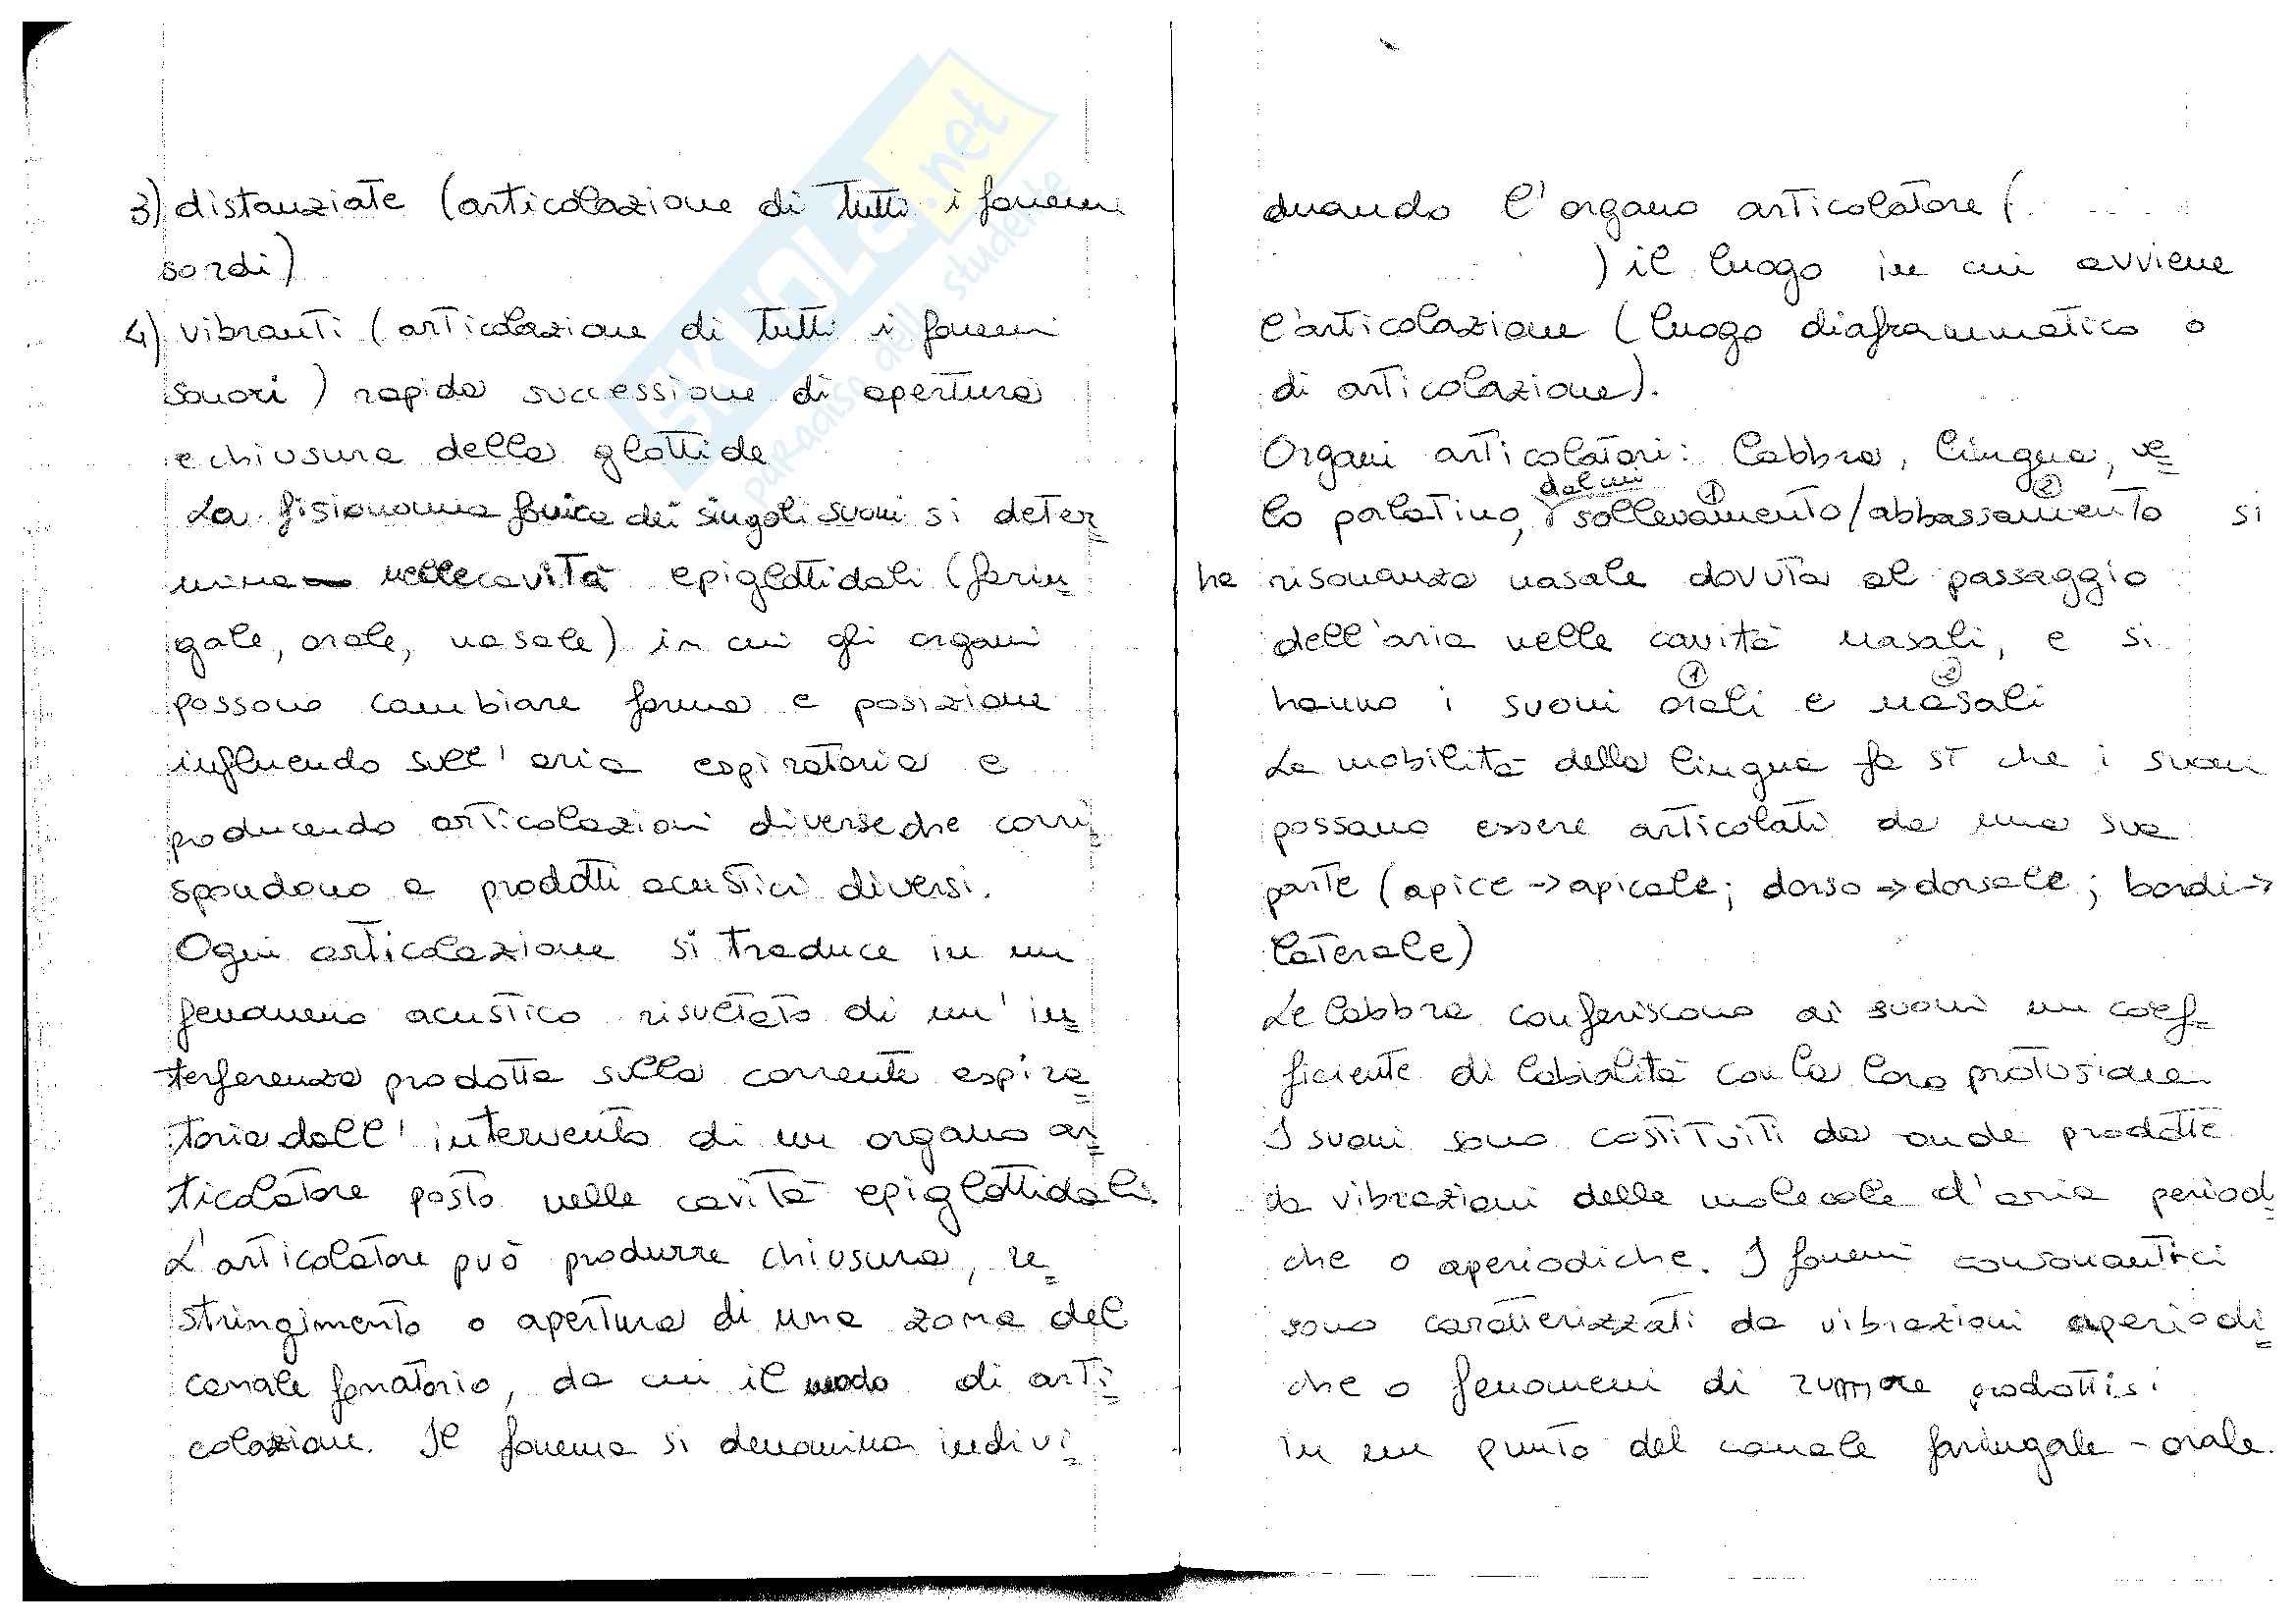 3) distanziate (articolazione di tutti i fonemi
sordi)
4) vibranti (articolazione di tutti i fonemi
sonori) rapida successione di apertura
e chiusura della glottide
La fisionomia fonica dei singoli suoni si deter=
mina nelle cavità epiglottidali (farin=
gale, orale, nasale) in cui gli organi
possono cambiare forma e posizione
influendo sull'aria espiratoria e
producendo articolazioni diverse che corri=
spondono a prodotti acustici diversi.
Ogni articolazione si traduce in un
fenomeno acustico risultato di un'in=
terferenza prodotta sulla corrente espira=
toria dall'intervento di un organo ar=
ticolatore posto nelle cavità epiglottidali.
L'articolatore può produrre chiusura, re=
stringimento o apertura di una zona del
canale fonatorio, da cui il modo di arti=
colazione. Il fonema si denomina indivi=
duando l'organo articolatore (
) il luogo in cui avviene
l'articolazione (luogo diaframmatico o
di articolazione).
Organi articolatori: labbra, lingua, ve=
dal cui ① ②
lo palatino, sollevamento/abbassamento si
ha risonanza nasale dovuta al passaggio
dell'aria nelle cavità nasali, e si
① ②
hanno i suoni orali e nasali
La mobilità della lingua fa sì che i suoni
possano essere articolati da una sua
parte (apice → apicale; dorso → dorsale; bordi →
laterale)
Le labbra conferiscono ai suoni un coef=
ficiente di labialità con la loro protusione
I suoni sono costituiti da onde prodotte
da vibrazioni delle molecole d'aria period=
che o aperiodiche. I fonemi consonantici
sono caratterizzati da vibrazioni aperiodi=
che o fenomeni di rumore prodottisi
in un punto del canale faringale-orale.
SKUOLA.net
paradiso dello studente